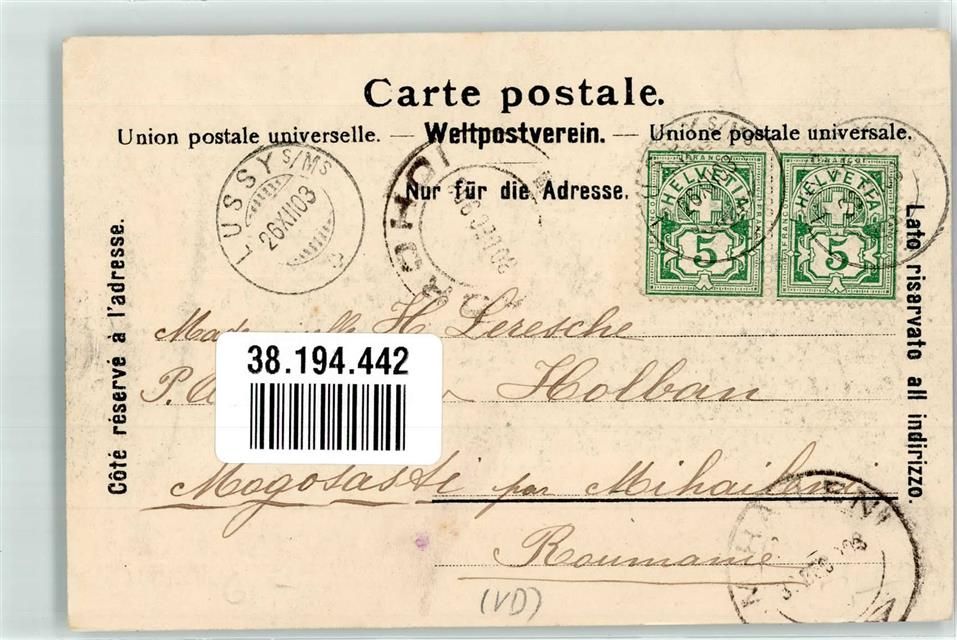 Carte postale.
Union postale universelle. — Weltpostverein. — Unione postale universale.
Nur für die Adresse.
Côté réservé à l'adresse.
Lato riservato all indirizzo.
LUSSY S/MS
26.XII.03
FRANCO
HELVETIA
5
FRANCO
HELVETIA
5
H. Leresche
38.194.442
P. Holban
Mogosasti par Mihaileni
Roumanie
(VD)